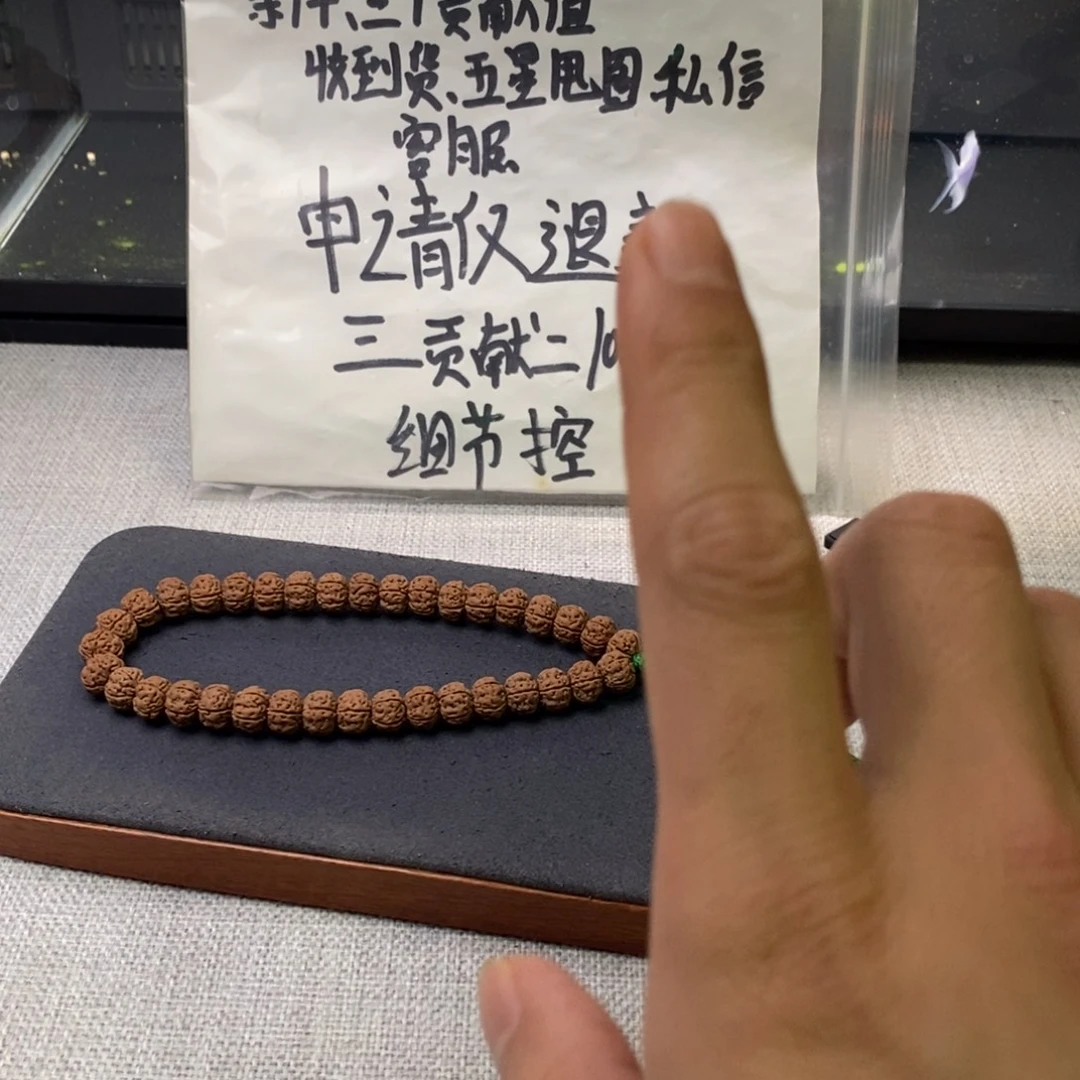 贡献值
收到货、五星甩图私信
客服
申请仅退
三贡献二10
组节控